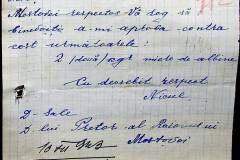 Mostovoi respectos Vă rog să
binevoiți a mi aproba contra
cost următoarele:
2 (două) kgr miere de albine
Cu deosebit respect
D-Sale
D-lui Pretor al Raionului
Mostovoi